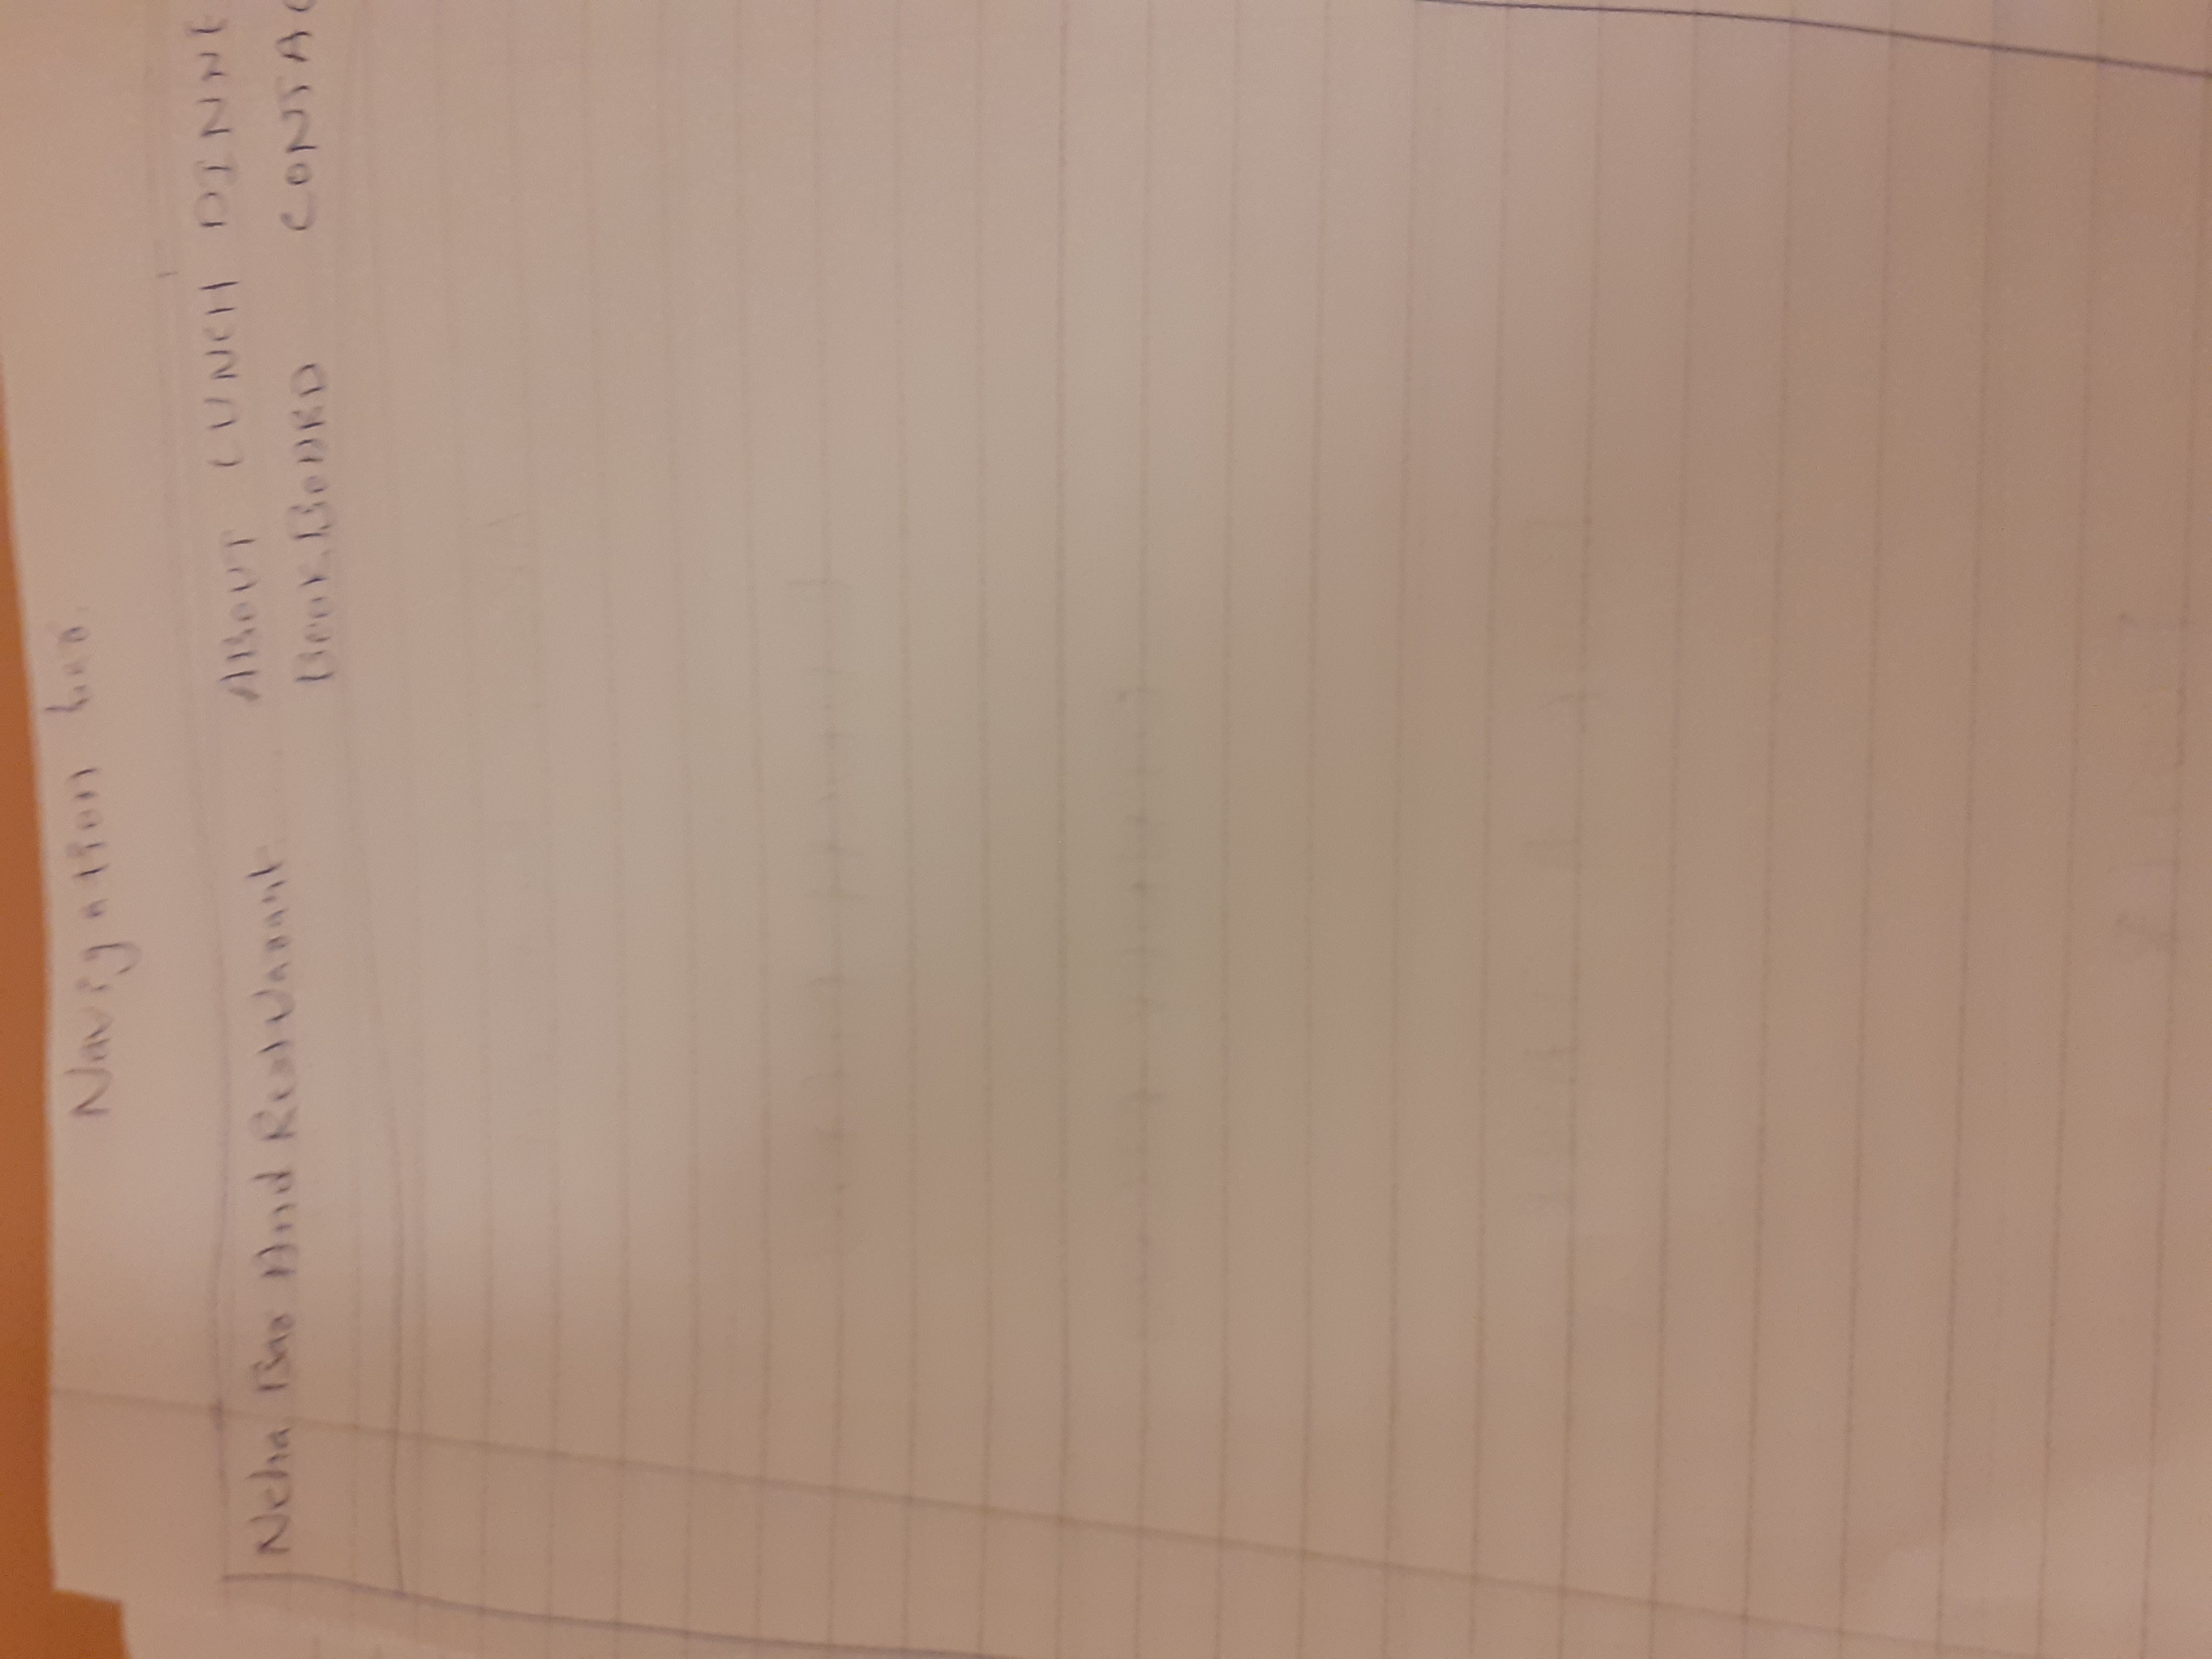 Navigation bar.
Neha Bar And Restuarant
ABOUT LUNCH DINNE
BOOKBOARD CONTAC